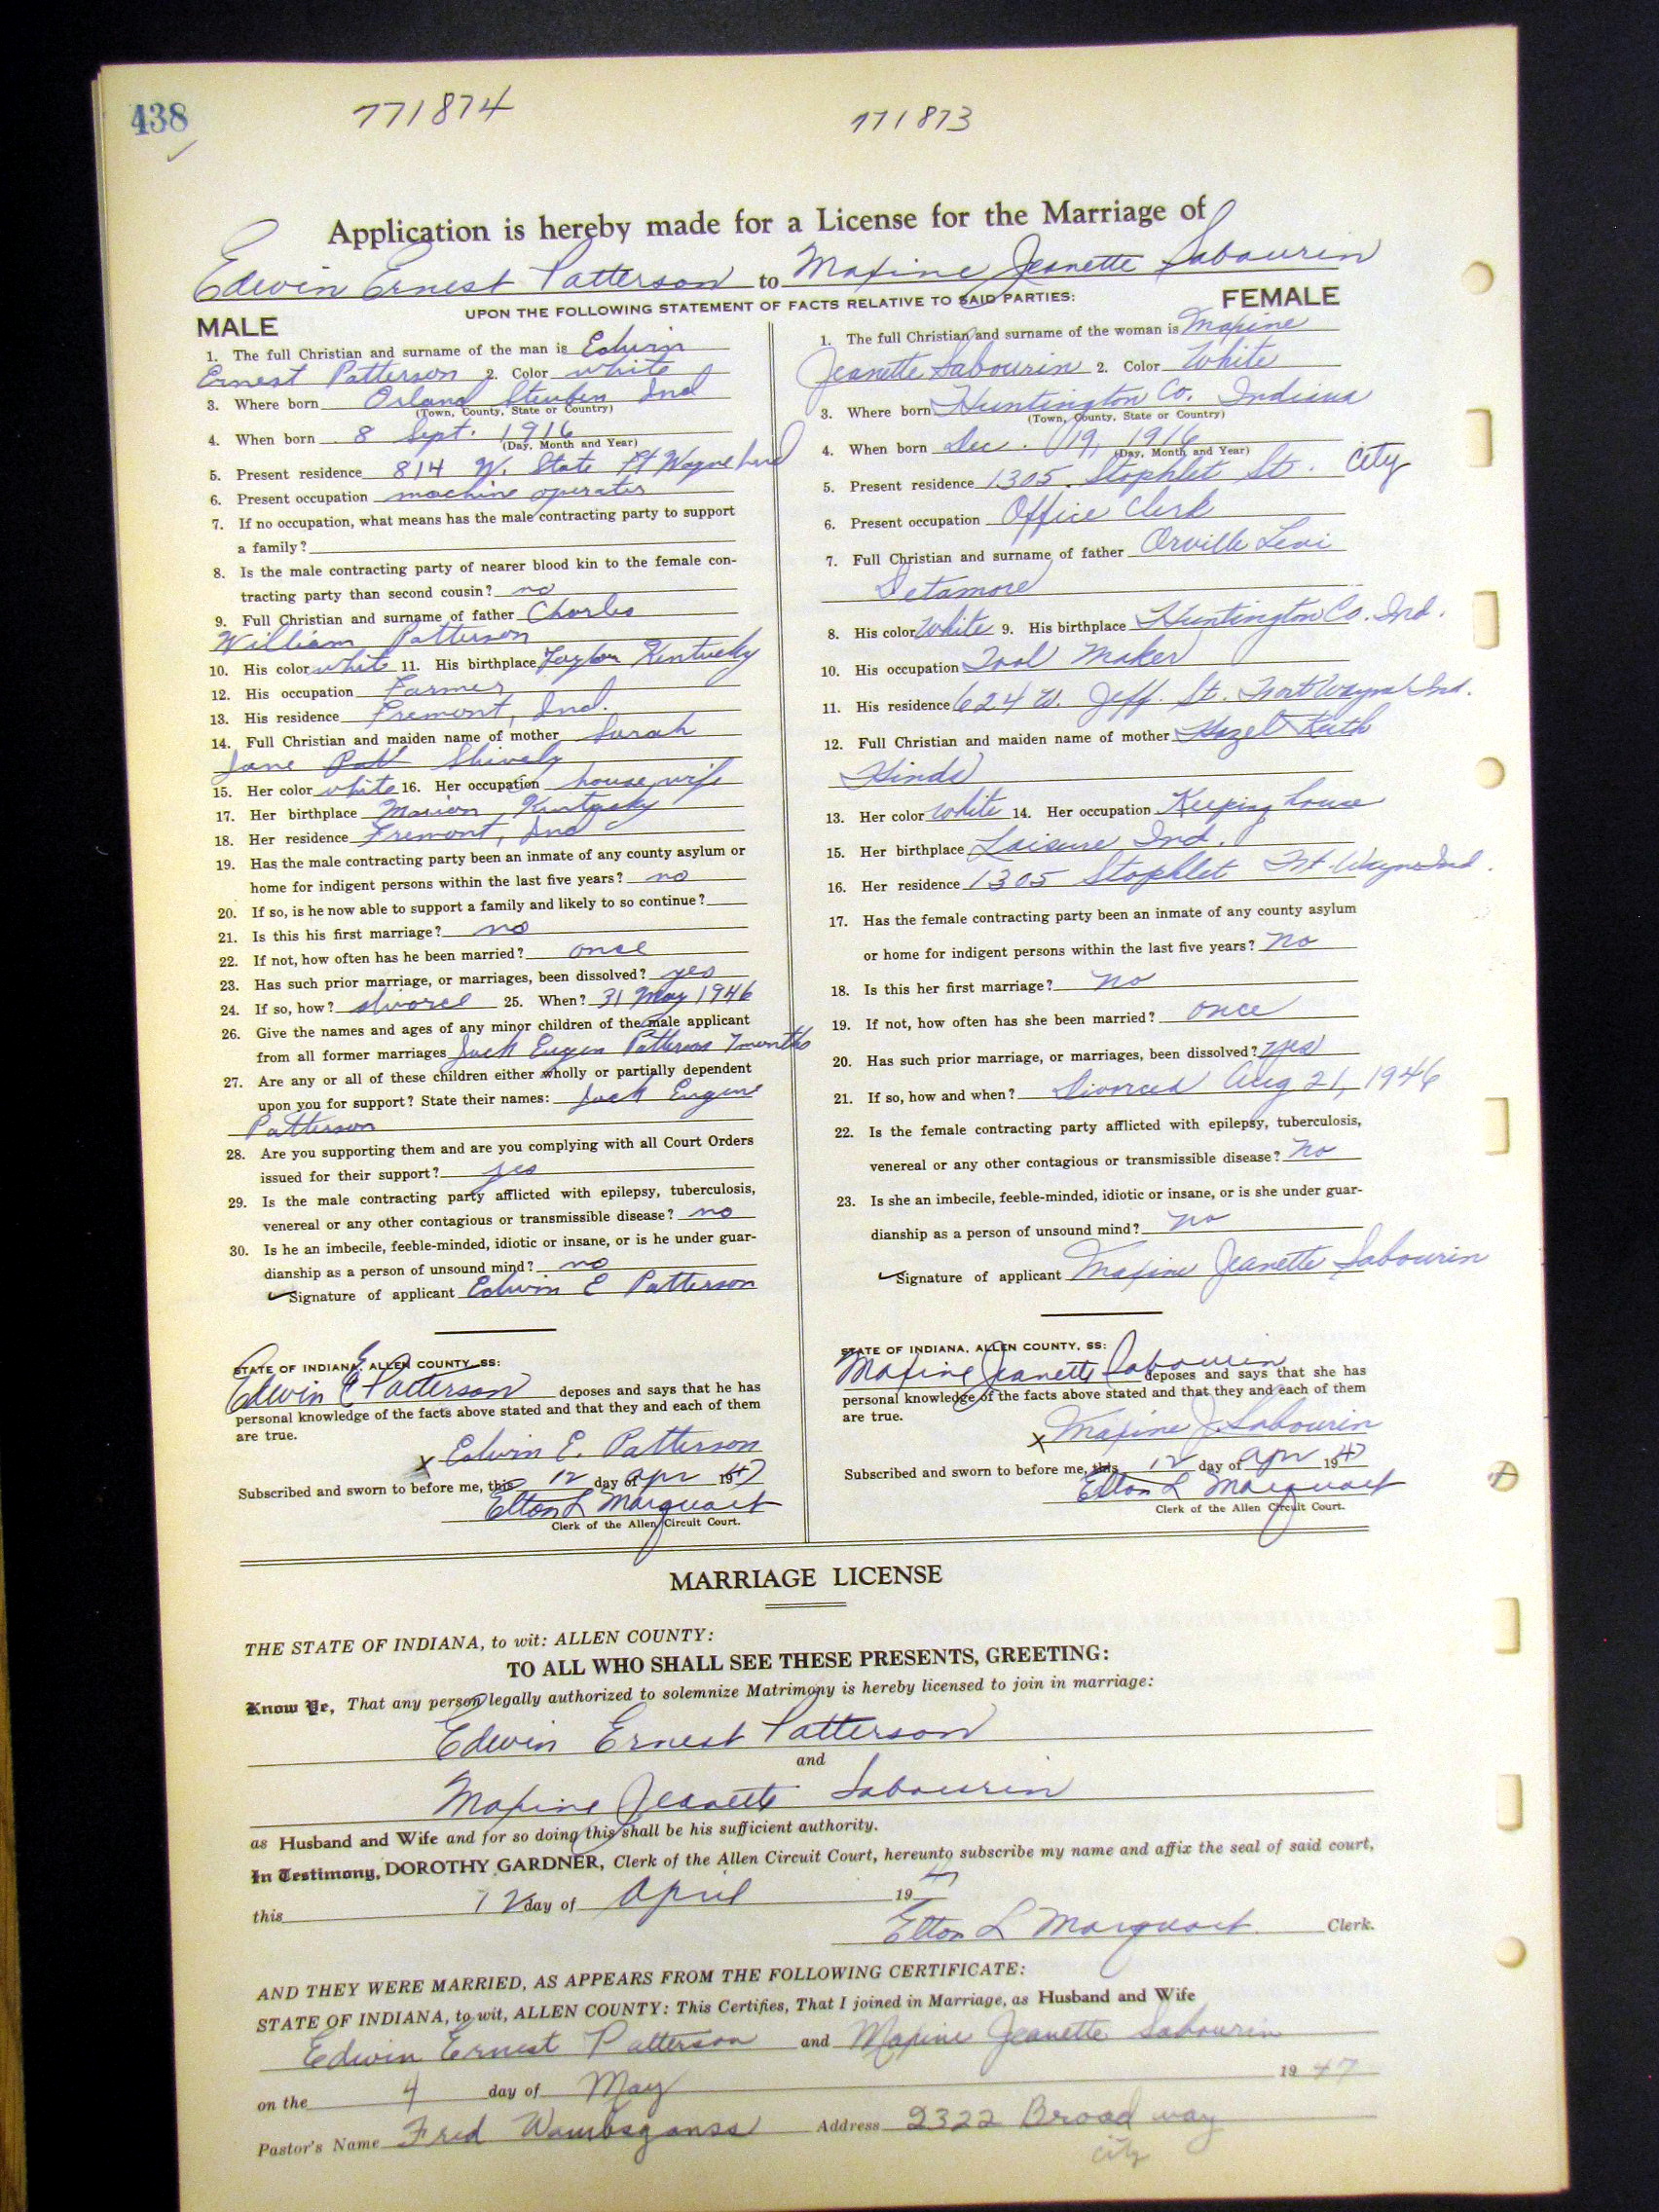 438
771874
771873
Application is hereby made for a License for the Marriage of
Edwin Ernest Patterson to Maxine Jeanette Sabourin
UPON THE FOLLOWING STATEMENT OF FACTS RELATIVE TO SAID PARTIES:
MALE
1. The full Christian and surname of the man is Edwin
Ernest Patterson 2. Color white
3. Where born Orland Steuben Ind
(Town, County, State or Country)
4. When born 8 Sept. 1916
(Day, Month and Year)
5. Present residence 814 W. State Ft Wayne Ind
6. Present occupation machine operator
7. If no occupation, what means has the male contracting party to support
a family?
8. Is the male contracting party of nearer blood kin to the female con-
tracting party than second cousin? no
9. Full Christian and surname of father Charles
William Patterson
10. His color white 11. His birthplace Taylor Kentucky
12. His occupation Farmer
13. His residence Fremont, Ind.
14. Full Christian and maiden name of mother Sarah
Jane Shively
15. Her color white 16. Her occupation house wife
17. Her birthplace Marion Kentucky
18. Her residence Fremont, Ind
19. Has the male contracting party been an inmate of any county asylum or
home for indigent persons within the last five years? no
20. If so, is he now able to support a family and likely to so continue?
21. Is this his first marriage? no
22. If not, how often has he been married? once
23. Has such prior marriage, or marriages, been dissolved? yes
24. If so, how? divorce 25. When? 31 May 1946
26. Give the names and ages of any minor children of the male applicant
from all former marriages Jack Eugen Patterson 7 months
27. Are any or all of these children either wholly or partially dependent
upon you for support? State their names: Jack Eugene
Patterson
28. Are you supporting them and are you complying with all Court Orders
issued for their support? yes
29. Is the male contracting party afflicted with epilepsy, tuberculosis,
venereal or any other contagious or transmissible disease? no
30. Is he an imbecile, feeble-minded, idiotic or insane, or is he under guar-
dianship as a person of unsound mind? no
Signature of applicant Edwin E Patterson
STATE OF INDIANA, ALLEN COUNTY, SS:
Edwin E Patterson deposes and says that he has
personal knowledge of the facts above stated and that they and each of them
are true.
x Edwin E. Patterson
Subscribed and sworn to before me, this 12 day of Apr 1947
Elton L Marquart
Clerk of the Allen Circuit Court.
FEMALE
1. The full Christian and surname of the woman is Maxine
Jeanette Sabourin 2. Color White
3. Where born Huntington Co. Indiana
(Town, County, State or Country)
4. When born Dec. 19, 1916
(Day, Month and Year)
5. Present residence 1305 Stophlet St. City
6. Present occupation Office Clerk
7. Full Christian and surname of father Orville Levi
Detamore
8. His color White 9. His birthplace Huntington Co. Ind.
10. His occupation Tool Maker
11. His residence 624 W. Jeff. St. Fort Wayne Ind.
12. Full Christian and maiden name of mother Hazel Ruth
Hinds
13. Her color White 14. Her occupation Keeping house
15. Her birthplace Laisure Ind.
16. Her residence 1305 Stophlet Ft. Wayne Ind.
17. Has the female contracting party been an inmate of any county asylum
or home for indigent persons within the last five years? No
18. Is this her first marriage? No
19. If not, how often has she been married? once
20. Has such prior marriage, or marriages, been dissolved? yes
21. If so, how and when? Divorced Aug 21, 1946
22. Is the female contracting party afflicted with epilepsy, tuberculosis,
venereal or any other contagious or transmissible disease? No
23. Is she an imbecile, feeble-minded, idiotic or insane, or is she under guar-
dianship as a person of unsound mind? No
Signature of applicant Maxine Jeanette Sabourin
STATE OF INDIANA, ALLEN COUNTY, SS:
Maxine Jeanette Sabourin deposes and says that she has
personal knowledge of the facts above stated and that they and each of them
are true.
x Maxine J. Sabourin
Subscribed and sworn to before me, this 12 day of Apr 1947
Elton L Marquart
Clerk of the Allen Circuit Court.
MARRIAGE LICENSE
THE STATE OF INDIANA, to wit: ALLEN COUNTY:
TO ALL WHO SHALL SEE THESE PRESENTS, GREETING:
Know Ye, That any person legally authorized to solemnize Matrimony is hereby licensed to join in marriage:
Edwin Ernest Patterson
and
Maxine Jeanette Sabourin
as Husband and Wife and for so doing this shall be his sufficient authority.
In Testimony, DOROTHY GARDNER, Clerk of the Allen Circuit Court, hereunto subscribe my name and affix the seal of said court,
this 12 day of April 1947
Elton L Marquart Clerk.
AND THEY WERE MARRIED, AS APPEARS FROM THE FOLLOWING CERTIFICATE:
STATE OF INDIANA, to wit, ALLEN COUNTY: This Certifies, That I joined in Marriage, as Husband and Wife
Edwin Ernest Patterson and Maxine Jeanette Sabourin
on the 4 day of May 1947
Pastor's Name Fred Wambsganss Address 2322 Broadway
city